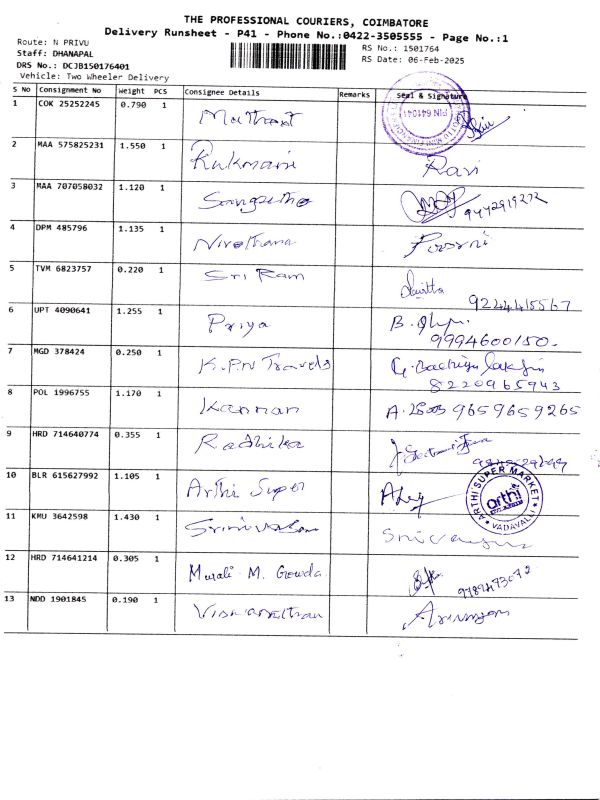 THE PROFESSIONAL COURIERS, COIMBATORE
Delivery Runsheet - P41 - Phone No.:0422-3505555 - Page No.:1
Route: N PRIVU
Staff: DHANAPAL
DRS No.: DCJB150176401
Vehicle: Two Wheeler Delivery
RS No.: 1501764
RS Date: 06-Feb-2025
S No Consignment No Weight PCS Consignee Details Remarks Seal & Signature
1 COK 25252245 0.790 1
PIN 641041
2 MAA 575825231 1.550 1 Rukmani Ravi
3 MAA 707058032 1.120 1 Sangeetha 9442919272
4 DPM 485796 1.135 1 Nivethana Poorni
5 TVM 6823757 0.220 1 Sri Ram
9224415567
6 UPT 4090641 1.255 1 Priya B.
9994600150.
7 MGD 378424 0.250 1 K.P.N Travels G.
8220965943
8 POL 1996755 1.170 1 Kannan A. 9659659265
9 HRD 714640774 0.355 1 Radhika
10 BLR 615627992 1.105 1 Arthi Super
ARTHI SUPER MARKET
arthi
VADAVALLI
11 KMU 3642598 1.430 1 Srinivasan
12 HRD 714641214 0.305 1 Murali M. Gowda
13 NDD 1901845 0.190 1